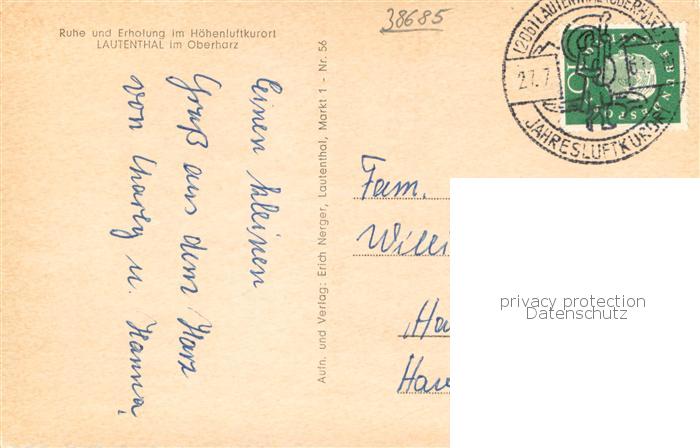 Ruhe und Erholung im Höhenluftkurort
LAUTENTHAL im Oberharz
38685
(20b) LAUTENTHAL (OBERHARZ)
27.7.
JAHRESLUFTKURORT
10
DEUTSCHE BUNDESPOST
einen kleinen
Gruß aus dem Harz
von Charly u. Hanna,
Aufn. und Verlag: Erich Nerger, Lautenthal, Markt 1 - Nr. 56
Fam.
Willi
Ha
Han
privacy protection
Datenschutz